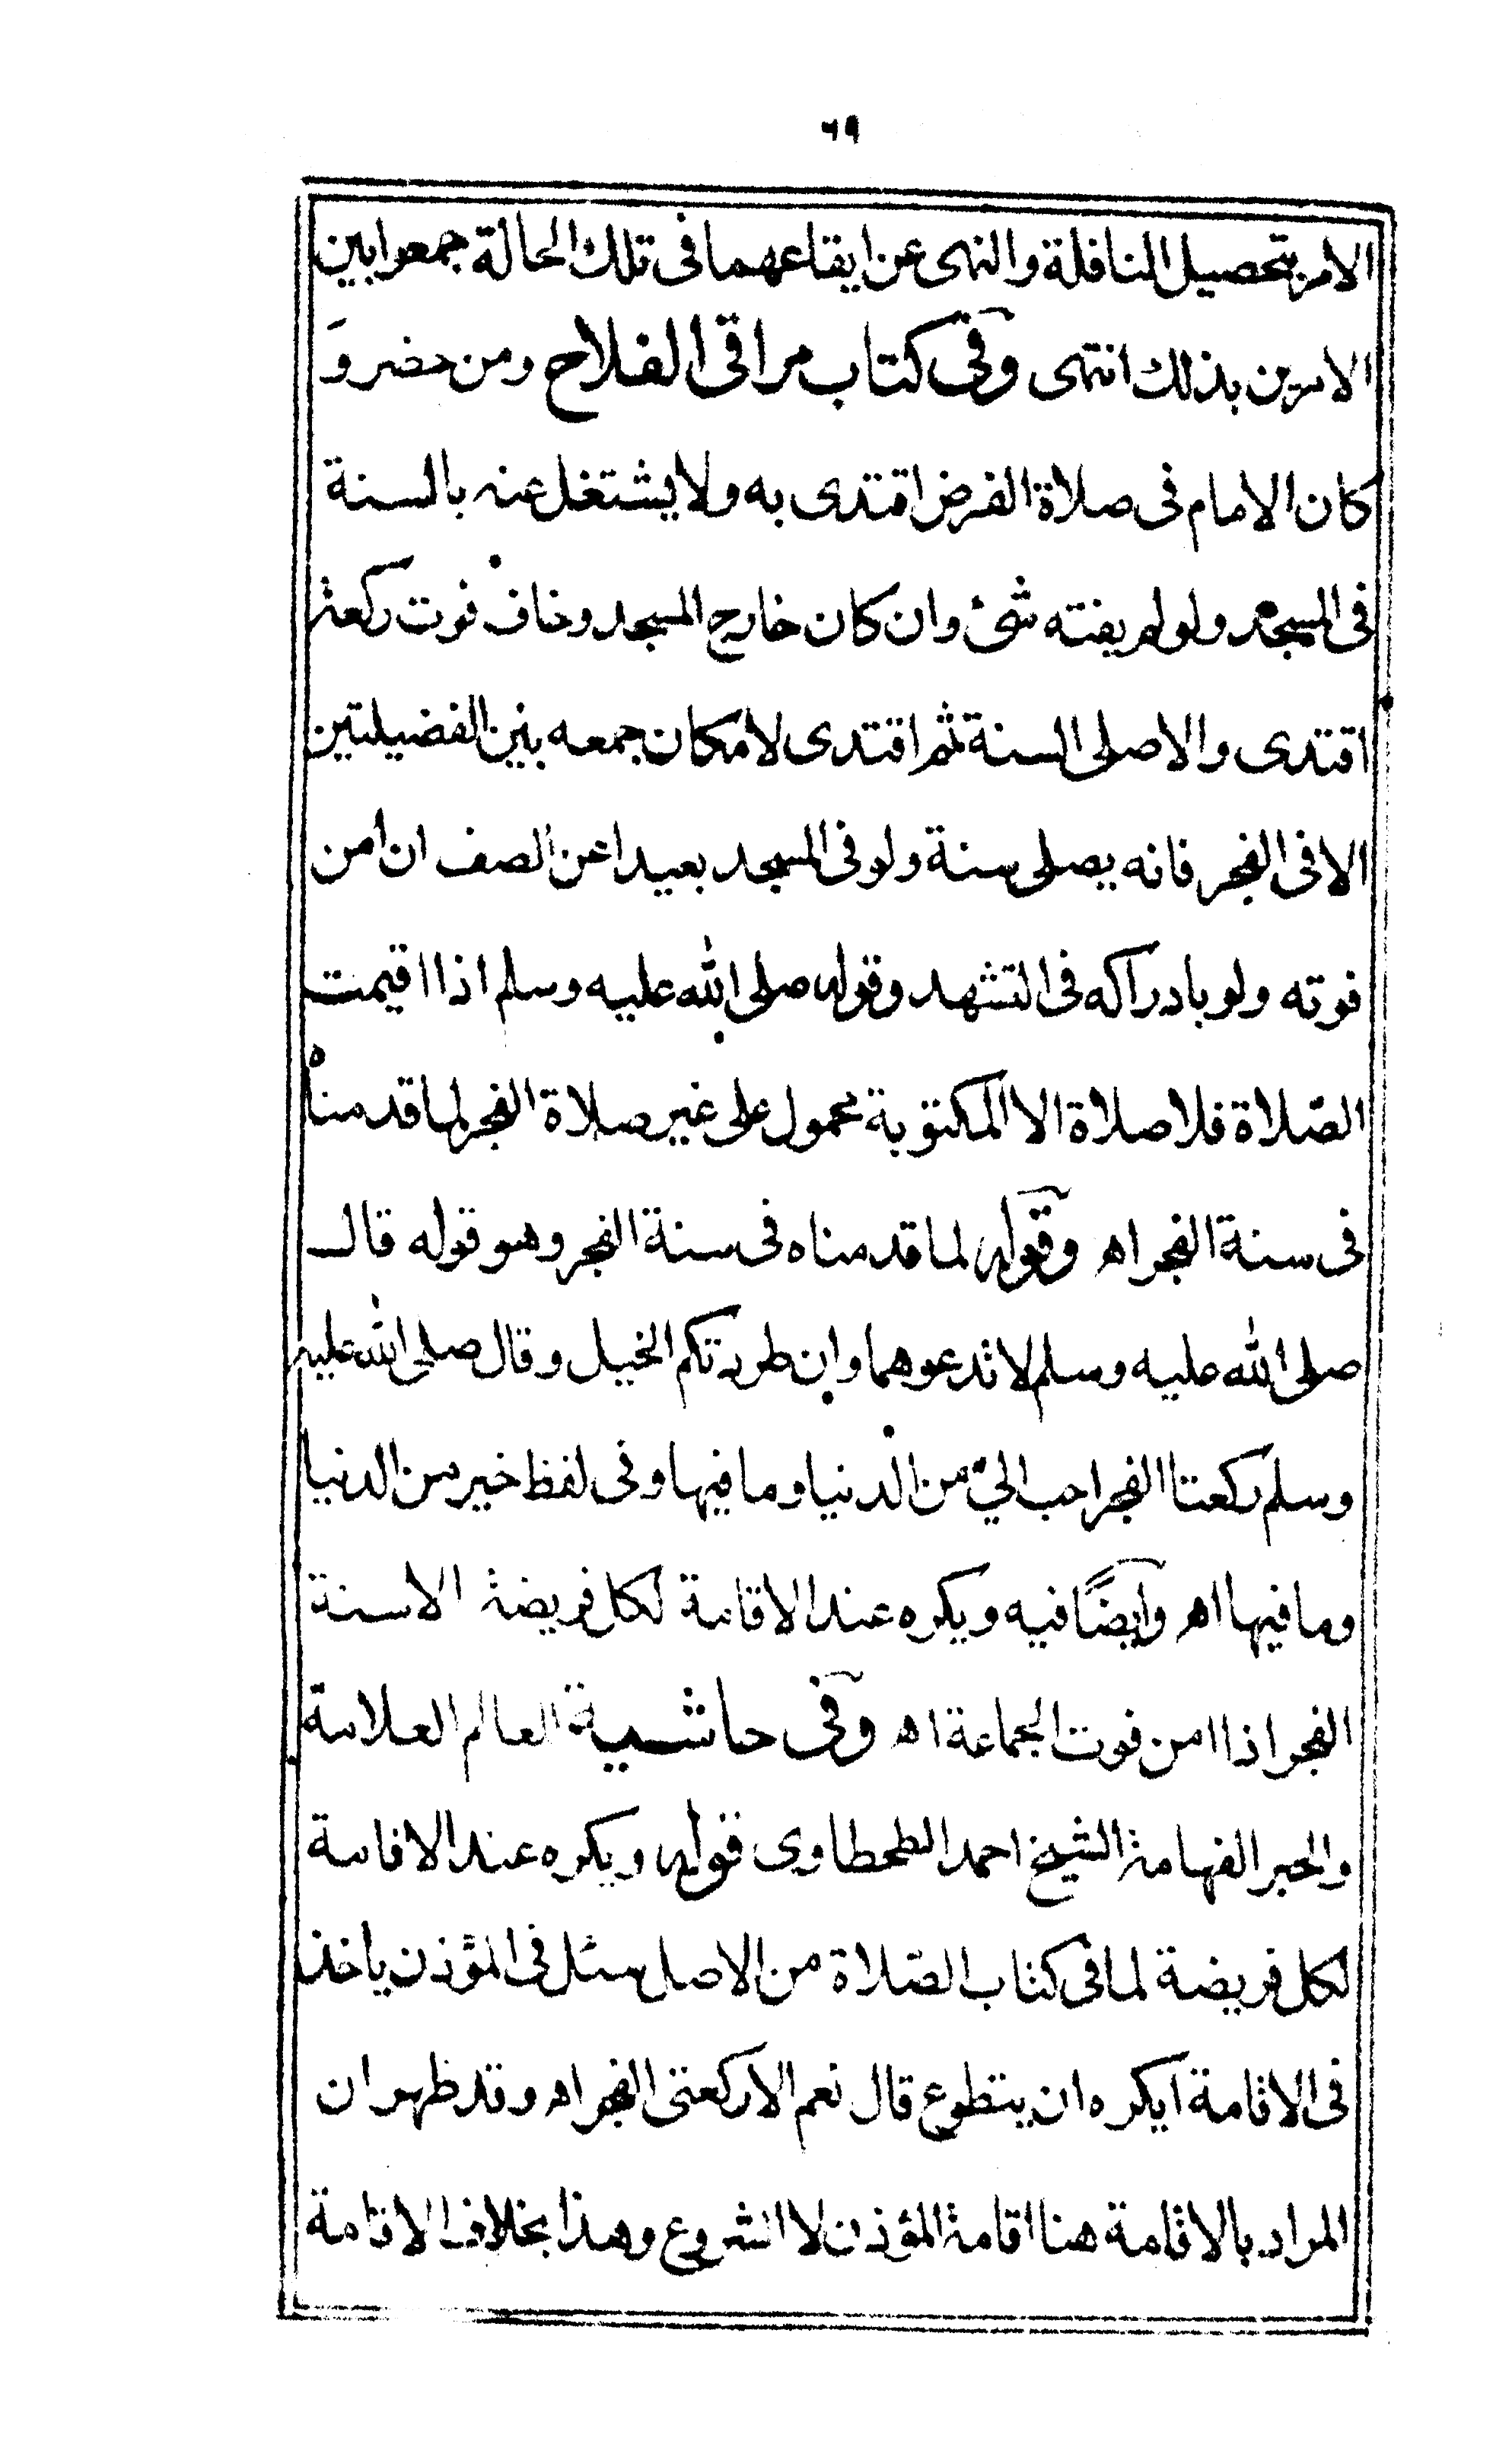 ٦٩
الامر بتحصيل النافلة والنهى عن ايقاعهما فى تلك الحالة جمعوا بين
الامرين بذلك انتهى وفى كتاب مراقى الفلاح ومن حضر وَ
كان الامام فى صلاة الفرض اقتدى به ولا يشتغل عنه بالسنة
فى المسجد ولو لم يفته شئ وان كان خارج المسجد وخاف فوت ركعة
اقتدى والا صلى السنة ثم اقتدى لامكان جمعه بين الفضيلتين
الا فى الفجر فانه يصلى سنة ولو فى المسجد بعيدا عن الصف ان امن
فوته ولو بادراكه فى التشهد وقوله صلى الله عليه وسلم اذا اقيمت
الصّلاة فلا صلاة الا المكتوبة محمول على غير صلاة الفجر لما قدمناه
فى سنة الفجر اه وقوله لما قدمناه فى سنة الفجر وهو قوله قال
صلى الله عليه وسلم لا تدعوهما وان طردتكم الخيل وقال صلى الله عليه
وسلم ركعتا الفجر احب اليّ من الدنيا وما فيها وفى لفظ خير من الدنيا
وما فيها اه وايضًا فيه ويكره عند الاقامة لكل فريضة الا سنة
الفجر اذا امن فوت الجماعة اه وفى حاشية العالم العلامة
والحبر الفهامة الشيخ احمد الطحطاوى قوله ويكره عند الاقامة
لكل فريضة لما فى كتاب الصّلاة من الاصل سئل فى المؤذن ياخذ
فى الاقامة ايكره ان يتطوع قال نعم الا ركعتى الفجر اه وقد ظهر ان
المراد بالاقامة هنا اقامة المؤذن لا الشروع وهذا بخلاف الاقامة